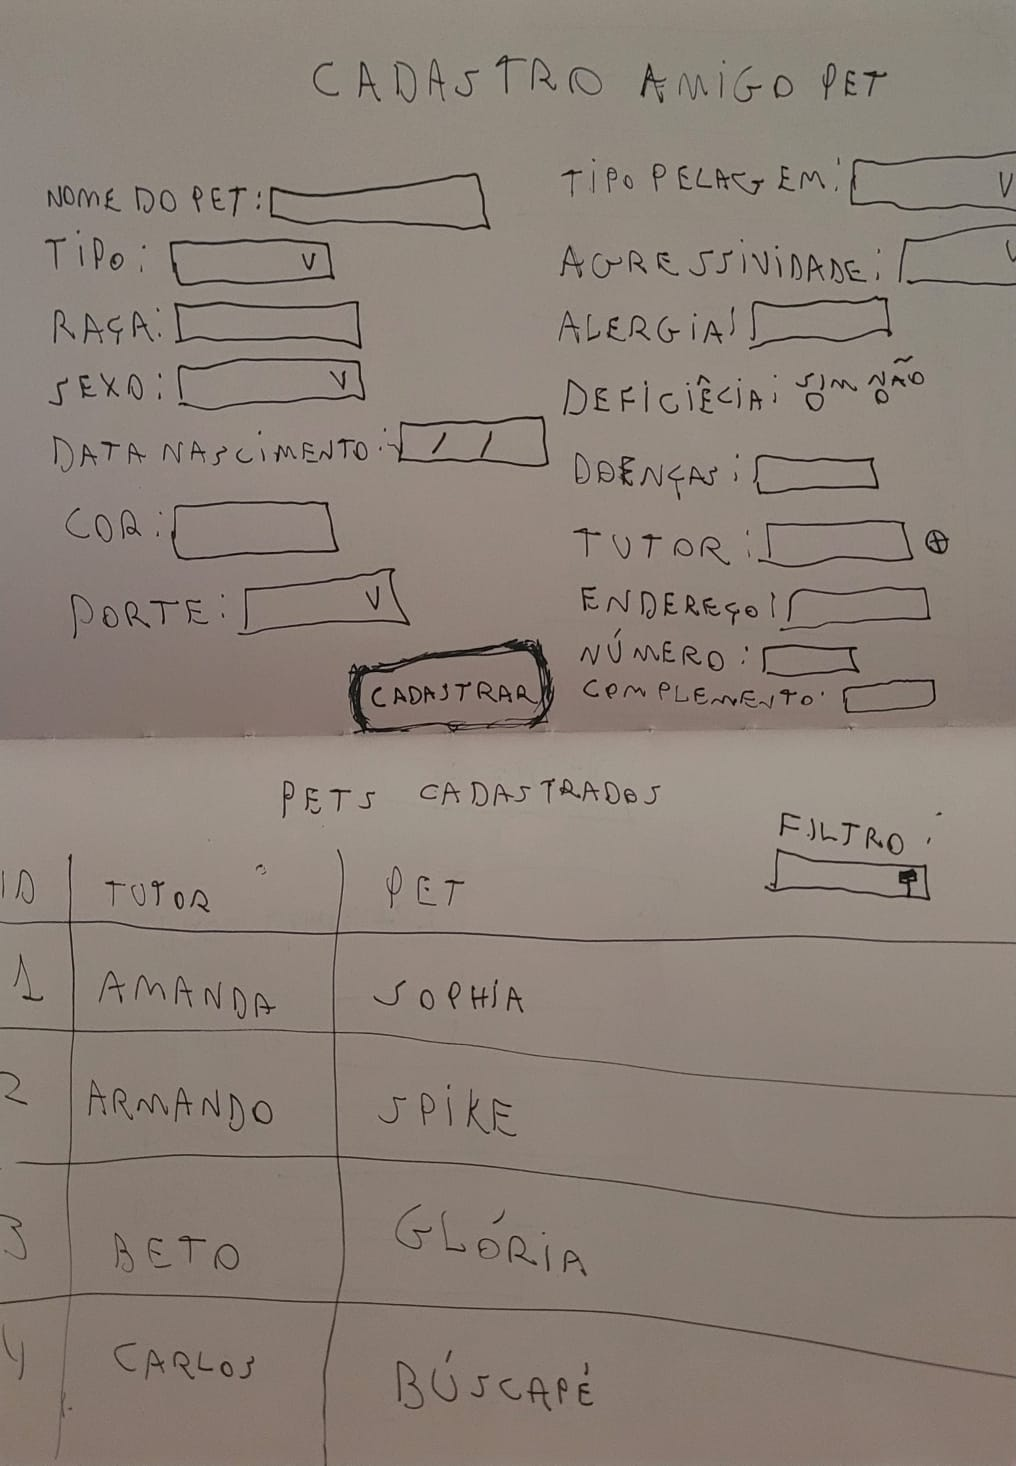 CADASTRO AMIGO PET
NOME DO PET:
TIPO: V
RAÇA:
SEXO: V
DATA NASCIMENTO: / /
COR:
PORTE: V
CADASTRAR
TIPO PELAGEM: V
AGRESSIVIDADE: V
ALERGIA:
DEFICIÊCIA: SIM NÃO
DOENÇAS:
TUTOR: ⊕
ENDEREÇO:
NÚMERO:
COMPLEMENTO:
PETS CADASTRADOS
FILTRO:
ID TUTOR PET
1 AMANDA SOPHIA
2 ARMANDO SPIKE
3 BETO GLÓRIA
4 CARLOS BÚSCAPÉ